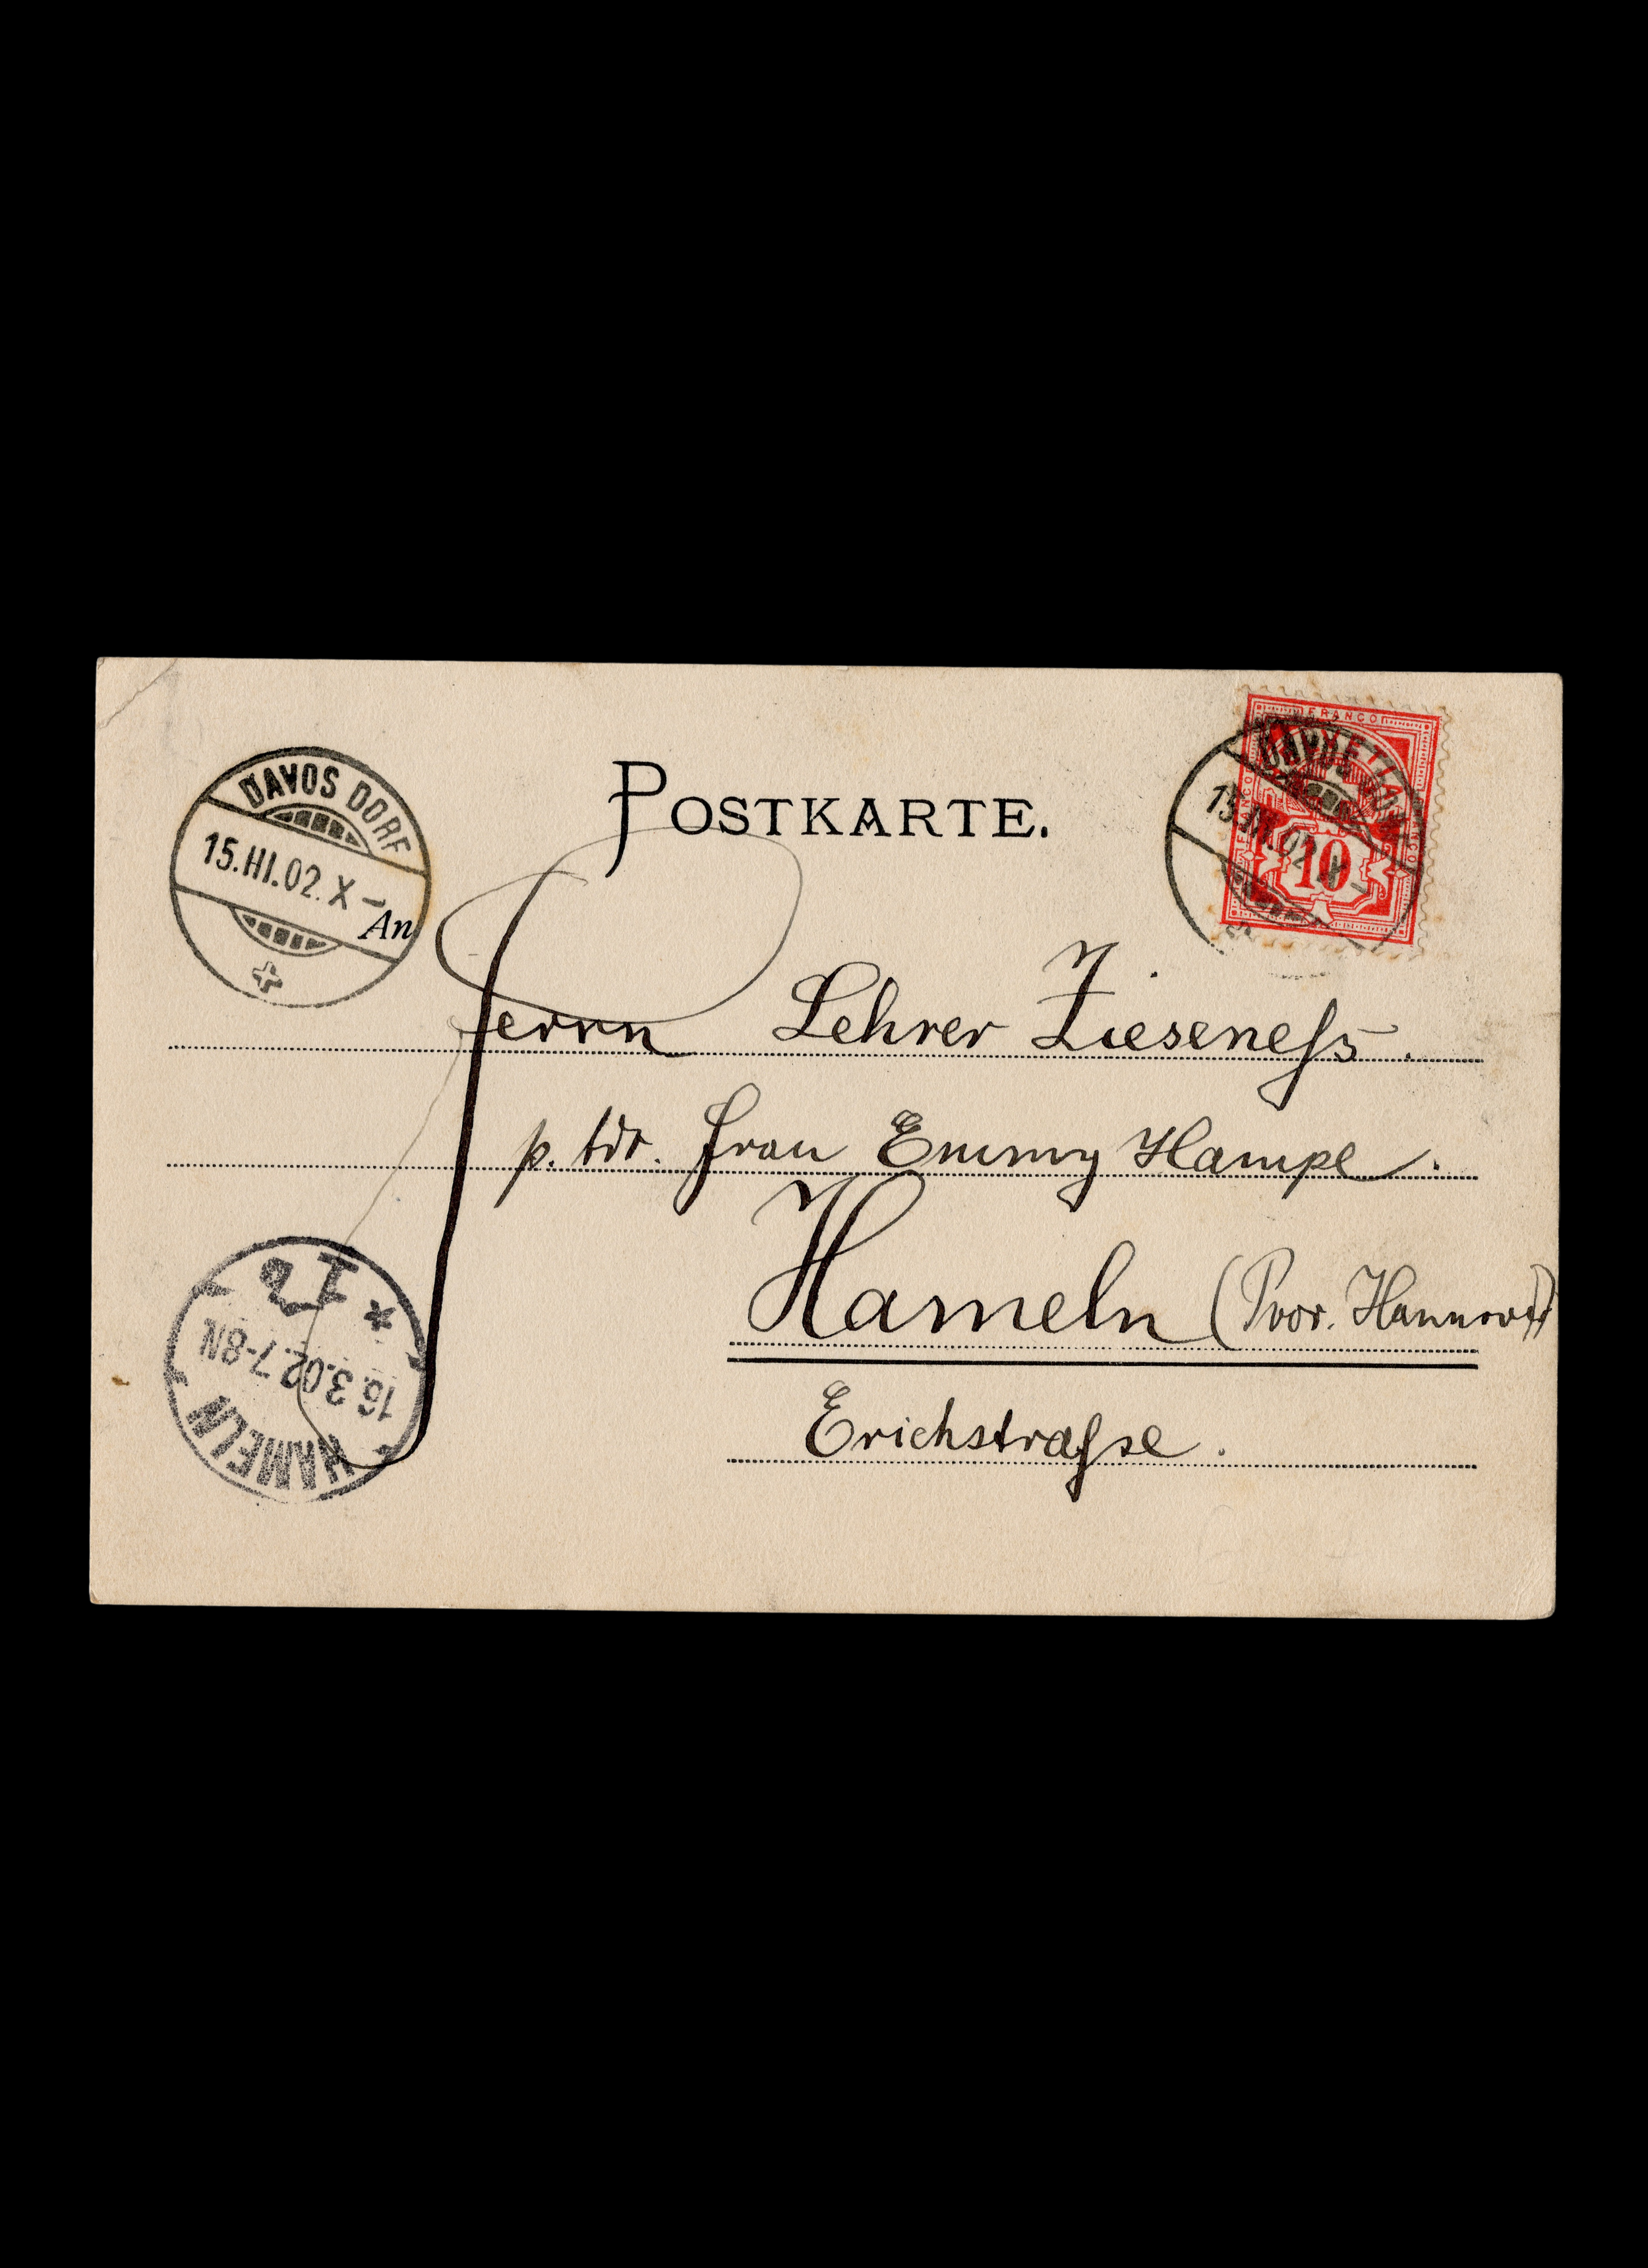 POSTKARTE.
DAVOS DORF
15.III.02.X–
An
FRANCO
HELVETIA
10
DAVOS DORF
15.III.02.X–
Herrn Lehrer Zieseneſs.
p. Adr. Frau Emmy Hampe.
Hameln (Prov. Hannover)
Erichstraſse.
HAMELN
16.3.02.7-8N.
* 1